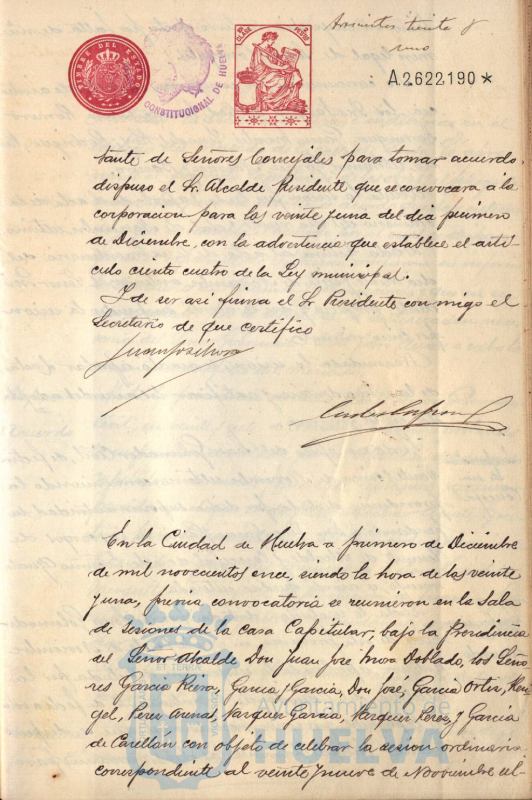 TIMBRE DEL ESTADO
CONSTITUCIONAL DE HUELVA
trescientos treinta y
uno
A2.622.190*
tante de Señores Concejales para tomar acuerdo
dispuso el Sr. Alcalde Presidente que se convocara á la
corporacion para las veinte y una del dia primero
de Diciembre, con la advertencia que establece el artí-
culo ciento cuatro de la Ley municipal.
Y de ser asi firma el Sr Presidente con migo el
Secretario de que certifico
En la Ciudad de Huelva a primero de Diciembre
de mil novecientos once, siendo la hora de las veinte
y una, previa convocatoria se reunieron en la Sala
de Sesiones de la casa Capitular, bajo la Presidencia
del Señor Alcalde Don Juan José Mora Doblado, los Seño-
res Garcia Riera, Garcia y Garcia, Don José, Garcia Ortiz, Ran-
gel, Perez Arenas, Vazquez Garcia, Vazquez Perez, y Garcia
de Carellán con objeto de celebrar la sesion ordinaria
correspondiente al veinte y nueve de Noviembre úl-
Ayuntamiento de
HUELVA